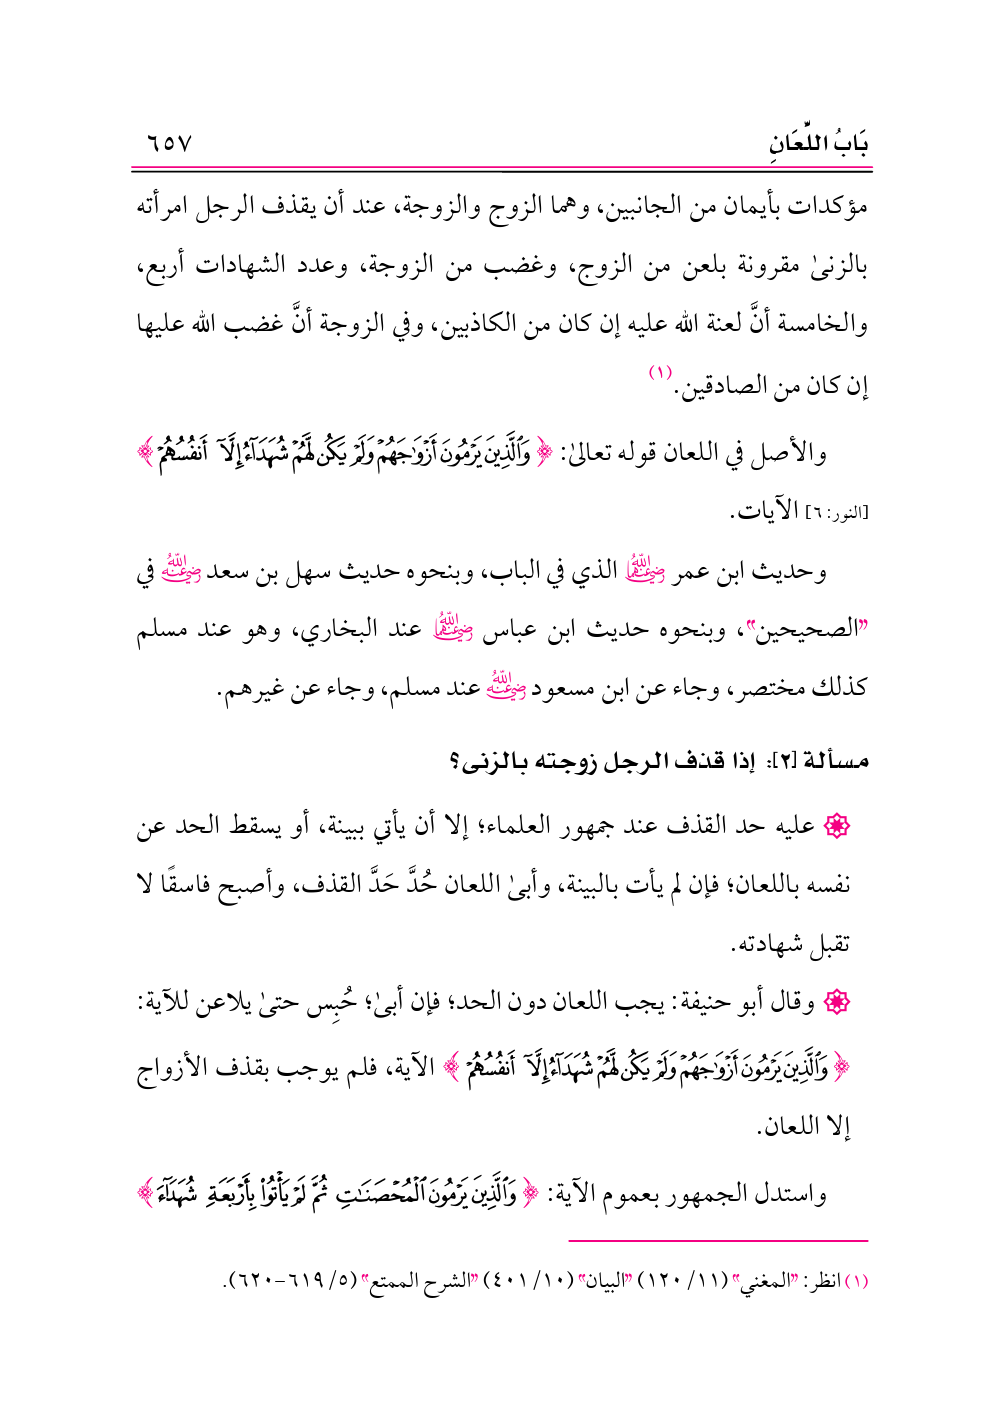 بَابُ اللِّعَانِ ٦٥٧
مؤكدات بأيمان من الجانبين، وهما الزوج والزوجة، عند أن يقذف الرجل امرأته
بالزنىٰ مقرونة بلعن من الزوج، وغضب من الزوجة، وعدد الشهادات أربع،
والخامسة أنَّ لعنة الله عليه إن كان من الكاذبين، وفي الزوجة أنَّ غضب الله عليها
إن كان من الصادقين.(١)
والأصل في اللعان قوله تعالىٰ: ﴿وَٱلَّذِينَ يَرۡمُونَ أَزۡوَٰجَهُمۡ وَلَمۡ يَكُن لَّهُمۡ شُهَدَآءُ إِلَّآ أَنفُسُهُمۡ﴾
[النور: ٦] الآيات.
وحديث ابن عمر رضي الله عنهما الذي في الباب، وبنحوه حديث سهل بن سعد رضي الله عنه في
"الصحيحين"، وبنحوه حديث ابن عباس رضي الله عنهما عند البخاري، وهو عند مسلم
كذلك مختصر، وجاء عن ابن مسعود رضي الله عنه عند مسلم، وجاء عن غيرهم.
مسألة [٢]: إذا قذف الرجل زوجته بالزنى؟
۞ عليه حد القذف عند جمهور العلماء؛ إلا أن يأتي ببينة، أو يسقط الحد عن
نفسه باللعان؛ فإن لم يأت بالبينة، وأبىٰ اللعان حُدَّ حَدَّ القذف، وأصبح فاسقًا لا
تقبل شهادته.
۞ وقال أبو حنيفة: يجب اللعان دون الحد؛ فإن أبىٰ؛ حُبِس حتىٰ يلاعن للآية:
﴿وَٱلَّذِينَ يَرۡمُونَ أَزۡوَٰجَهُمۡ وَلَمۡ يَكُن لَّهُمۡ شُهَدَآءُ إِلَّآ أَنفُسُهُمۡ﴾ الآية، فلم يوجب بقذف الأزواج
إلا اللعان.
واستدل الجمهور بعموم الآية: ﴿وَٱلَّذِينَ يَرۡمُونَ ٱلۡمُحۡصَنَٰتِ ثُمَّ لَمۡ يَأۡتُواْ بِأَرۡبَعَةِ شُهَدَآءَ﴾
(١) انظر: "المغني" (١١/ ١٢٠) "البيان" (١٠/ ٤٠١) "الشرح الممتع" (٥/ ٦١٩-٦٢٠).